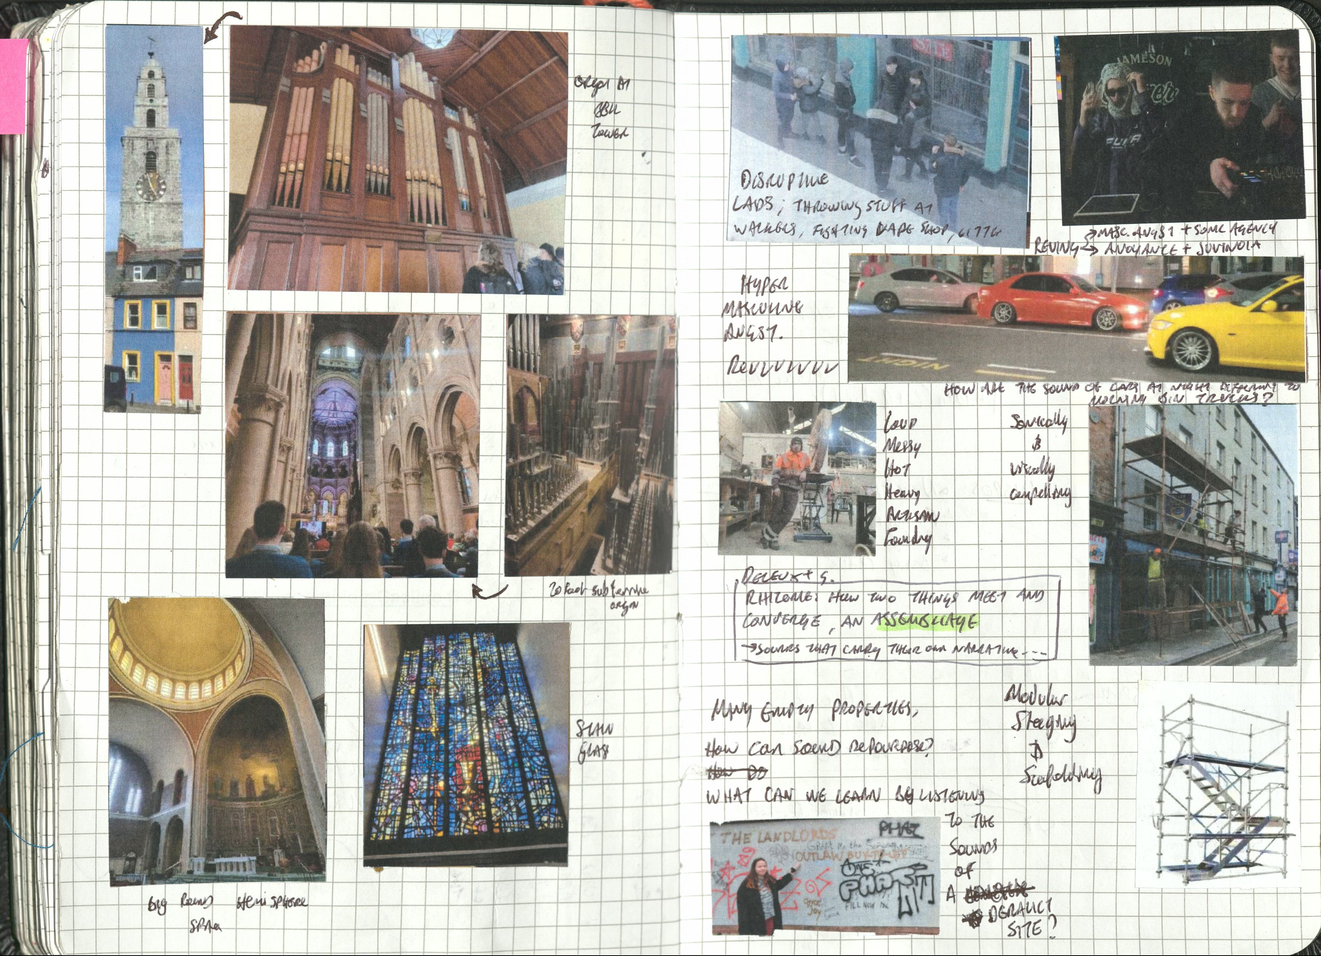 organ at
Tower
20 foot subterrine
organ
Stain
Glass
Big Round Hemisphere
DISRUPTIVE
LADS; THROWING STUFF AT
WALKERS, FIGHTING VAPE SHOP, LITTER
JAMESON
→ MASC. ANGST + SOME AGENCY
REVING → ANOYANCE + JUVINOIA
HYPER
MASCULINE
ANGST.
ReVVVVVVV
HOW ARE THE SOUND OF CARS AT NIGHT DIFFERENT TO
MORNING BIN TRUCKS?
Loud
Messy
Hot
Heavy
Artisan
Foundry
Sonically
&
visually
compelling
DELEUX + G.
RHIZOME: HOW TWO THINGS MEET AND
CONVERGE, AN ASSEMBLAGE
→ SOUNDS THAT CARRY THEIR OWN NARRATIVE...
MANY EMPTY PROPERTIES,
HOW CAN SOUND REPOURPOSE?
HOW DO
WHAT CAN WE LEARN BY LISTENING
TO THE
SOUNDS
OF
A
DERALICT
SITE?
Modular
Staging
&
Scafolding
THE LANDLORDS
PHAZ
OUTLAW